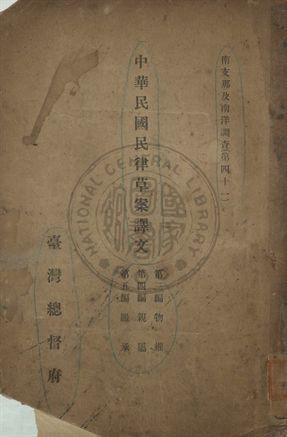 南支那及南洋調查第四十一
中華民國民律草案譯文
第三編物權
第四編親屬
第五編繼承
臺灣總督府
NATIONAL CENTRAL LIBRARY